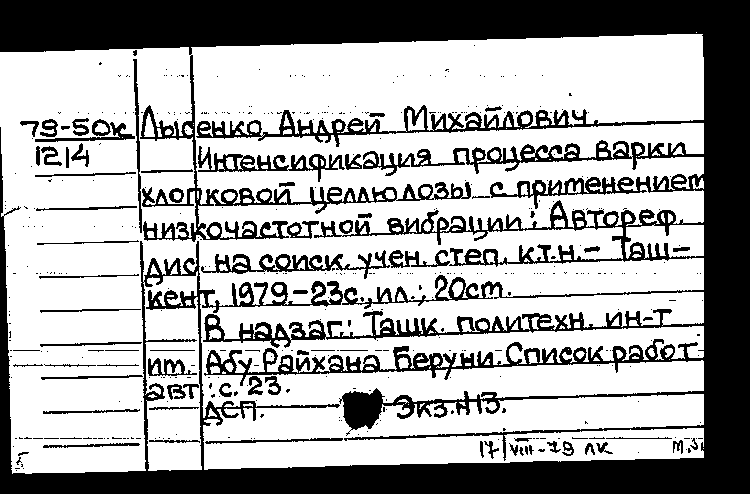 79-50к Лысенко, Андрей Михайлович.
1214 Интенсификация процесса варки
хлопковой целлюлозы с применением
низкочастотной вибрации: Автореф.
дис. на соиск. учен. степ. к.т.н.- Таш-
кент, 1979.-23с., ил.; 20ст.
В надзаг.: Ташк. политехн. ин-т
им. Абу Райхана Беруни. Список работ
авт.: с. 23.
ДСП. Экз.№13.
17/VIII-79 ЛК